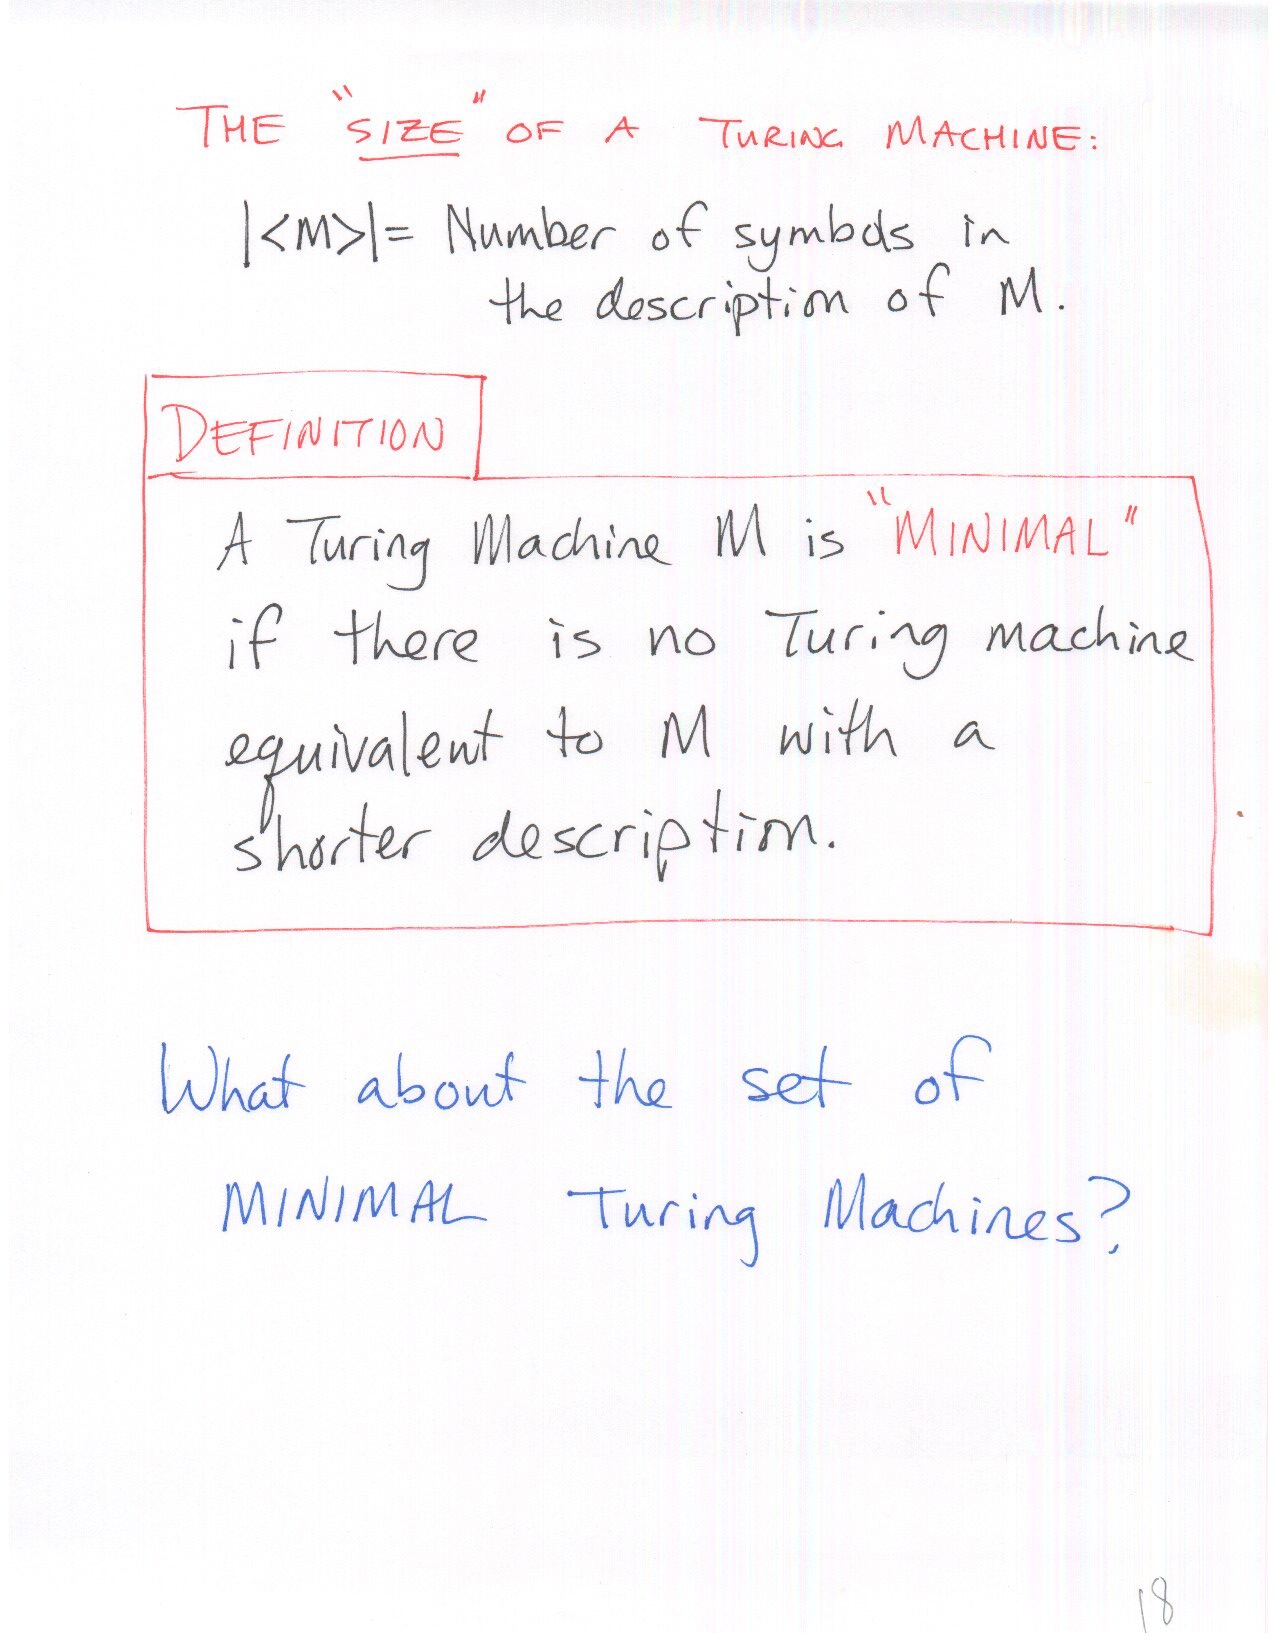 THE "SIZE" OF A TURING MACHINE:
|<M>| = Number of symbols in
the description of M.
DEFINITION
A Turing Machine M is "MINIMAL"
if there is no Turing machine
equivalent to M with a
shorter description.
What about the set of
MINIMAL Turing Machines?
18